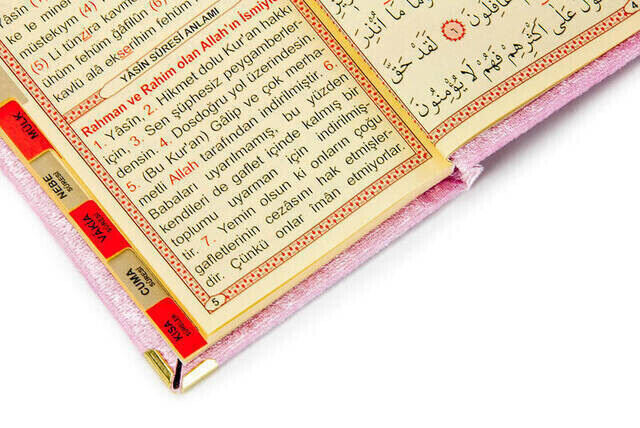 Yâsîn (
ke minel
müstekıym (4)
(5) Li tünzira kavmen
ühüm fehüm ğâfilûn (6)
kavlü alâ ekserihim fehüm
YÂSÎN SÛRESİ ANLAMI
Rahman ve Rahim olan Allah'ın İsmiyle
1. Yâsîn. 2. Hikmet dolu Kur'an hakkı
için, 3. Sen şüphesiz peygamberler-
densin. 4. Dosdoğru yol üzerindesin.
5. (Bu Kur'an) Gâlip ve çok merha-
metli Allah tarafından indirilmiştir. 6.
Babaları uyarılmamış, bu yüzden
kendileri de gaflet içinde kalmış bir
toplumu uyarman için indirilmiş-
tir. 7. Yemin olsun ki onların çoğu
gafletlerinin cezasını hak etmişler-
dir. Çünkü onlar imân etmiyorlar.
5
MÜLK
NEBE
SÛRESİ
VÂKIA
SÛRESİ
CUMA
SÛRESİ
KISA
SÛRELER
مَا أُنْذِرَ
غَافِلُونَ ٦ لَقَدْ حَقَّ
عَلَى أَكْثَرِهِمْ فَهُمْ لَا يُؤْمِنُونَ